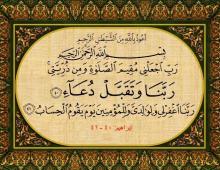 أَعُوذُ بِاللَّهِ مِنَ الشَّيْطَانِ الرَّجِيمِ
بِسْمِ اللَّهِ الرَّحْمَٰنِ الرَّحِيمِ
رَبِّ اجْعَلْنِي مُقِيمَ الصَّلَوٰةِ وَمِن ذُرِّيَّتِي
رَبَّنَا وَتَقَبَّلْ دُعَآءِ ٤٠
رَبَّنَا اغْفِرْ لِي وَلِوَٰلِدَيَّ وَلِلْمُؤْمِنِينَ يَوْمَ يَقُومُ الْحِسَابُ ٤١
ابراهيم ٤٠-٤١